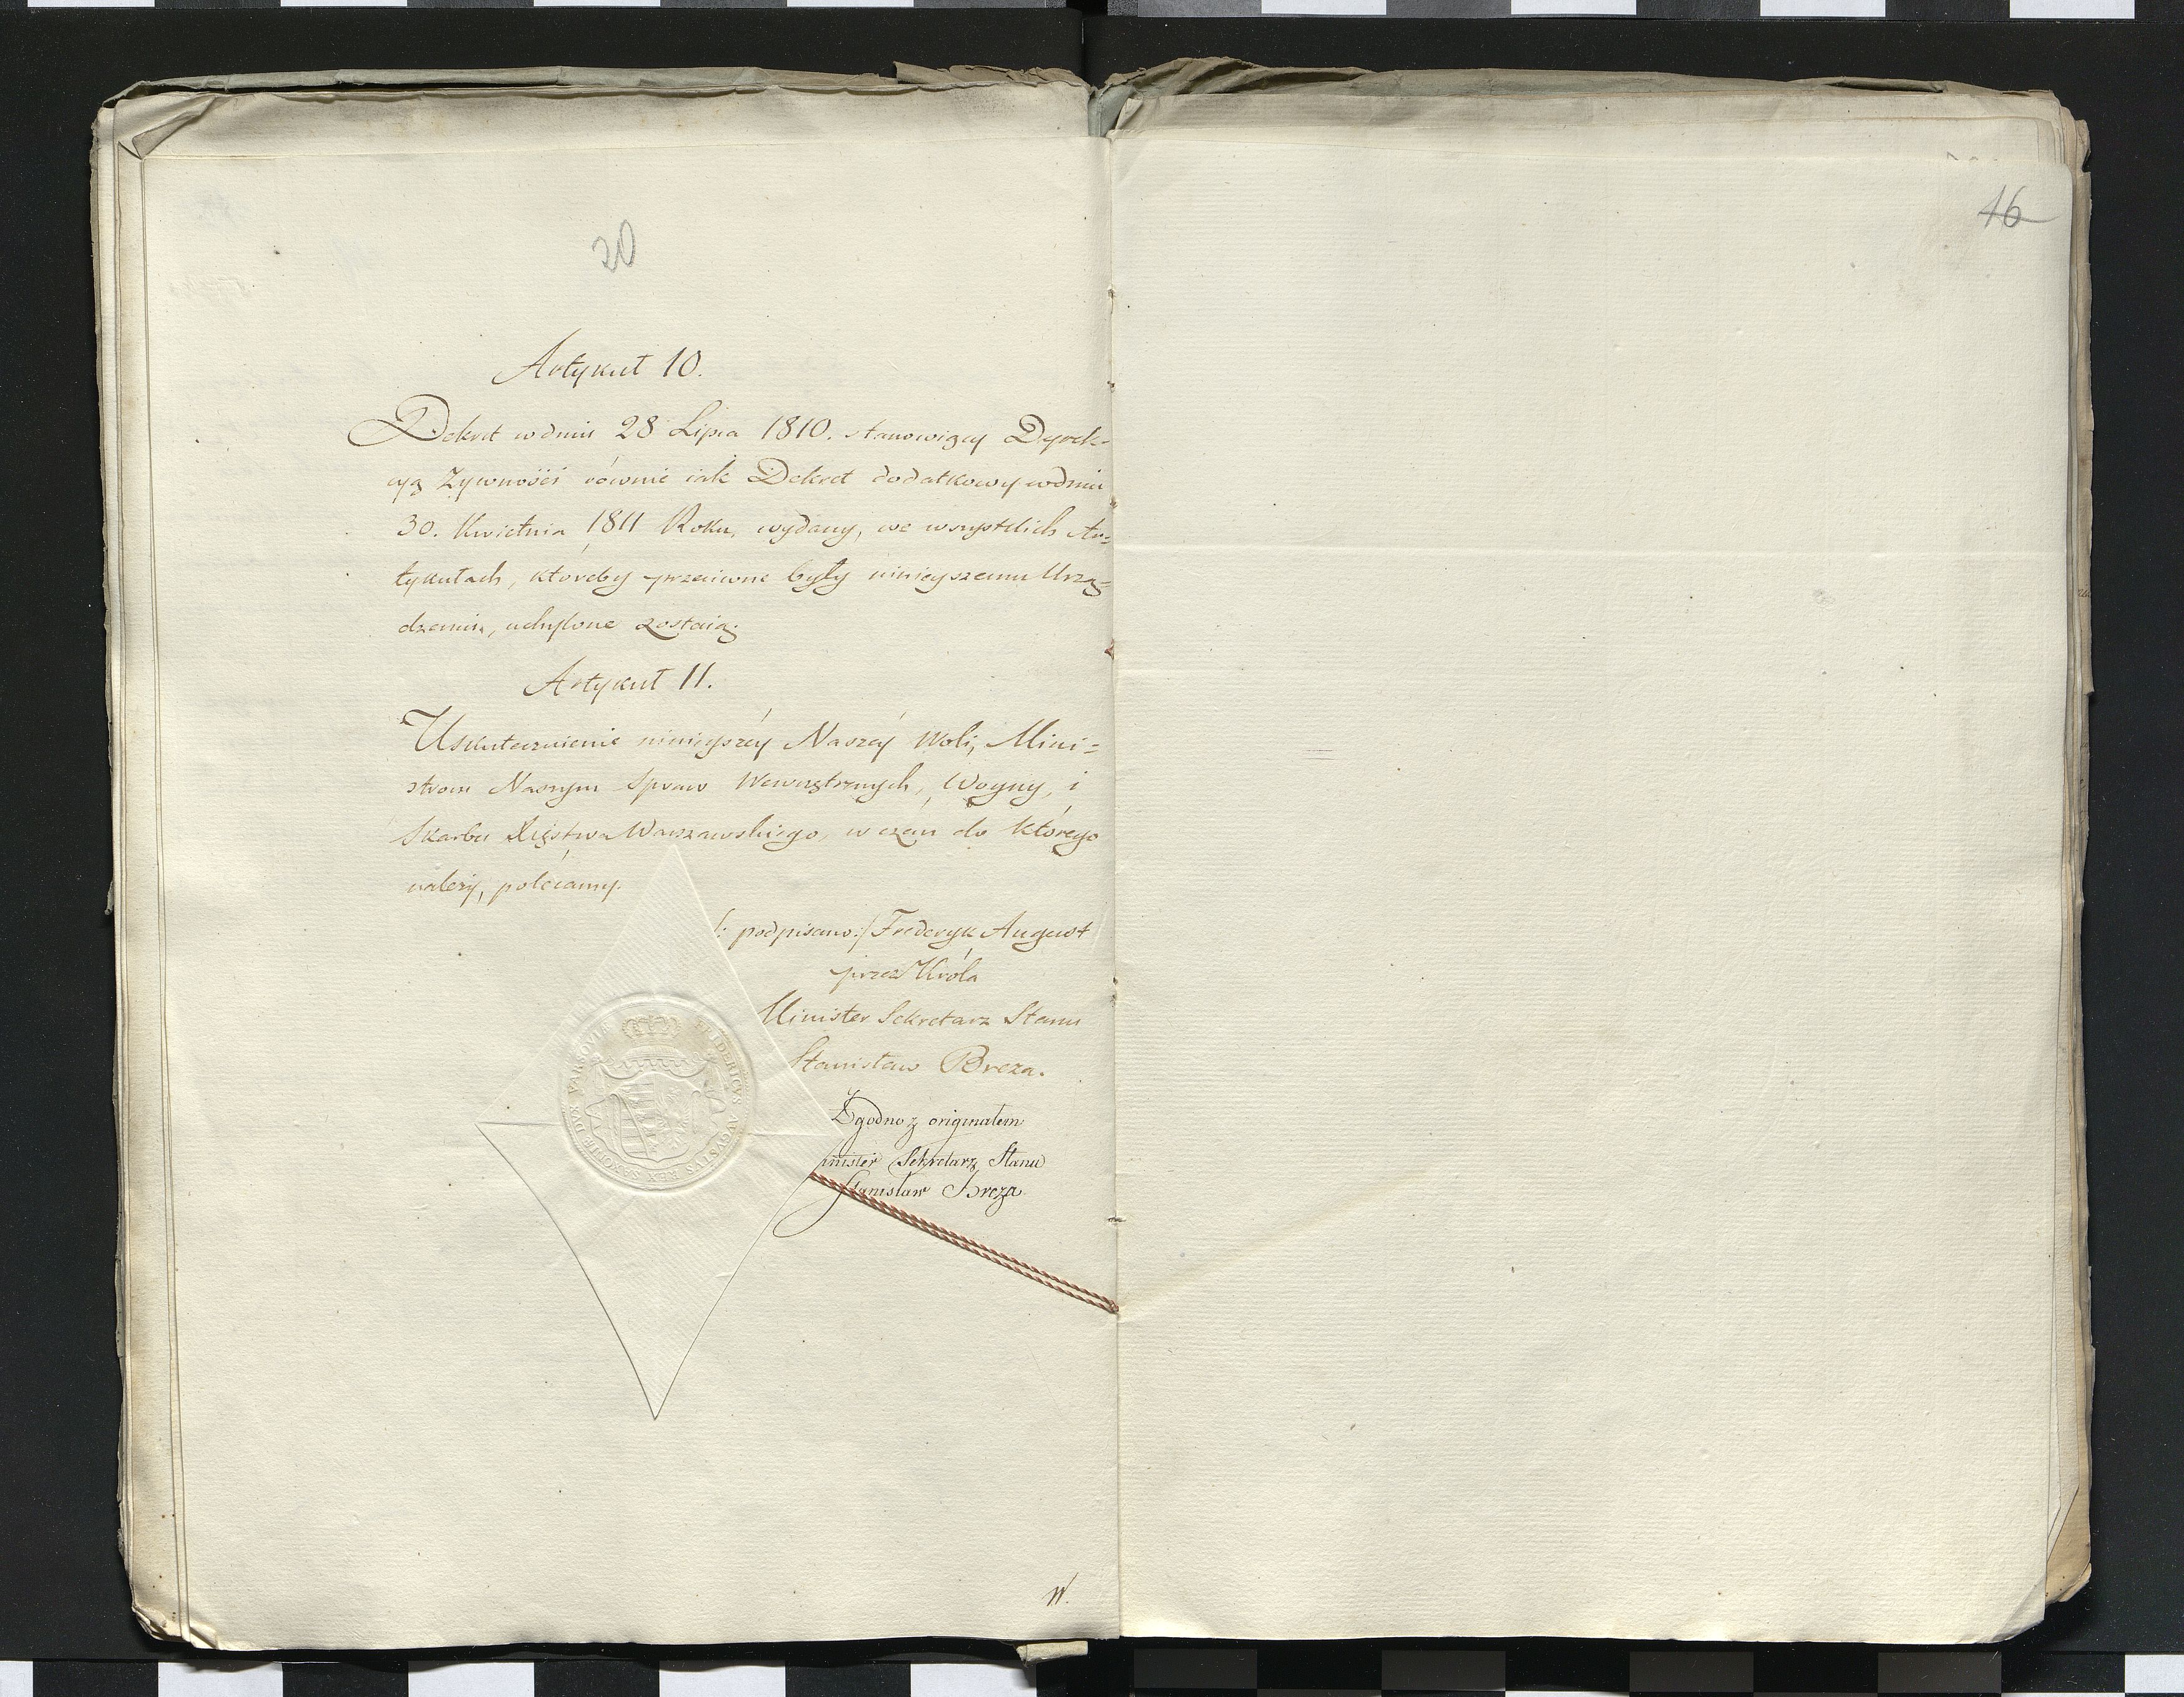 20
Artykuł 10.
Dekret w dniu 28 Lipca 1810. stanowiący Dyrek-
cyą Zywności równie iak Dekret dodatkowy w dniu
30. Kwietnia 1811 Roku, wydany, we wszystkich Ar=
tykułach, któreby przeciwne były ninieyszemu Urzą=
dzeniu, uchylone zostaią.
Artykuł 11.
Uskutecznienie ninieyszéy Naszéy Woli, Mini=
strom Naszym Spraw Wewnętrznych, Woyny, i
Skarbu Xięstwa Warszawskiego, w czém do którego
należy, polécamy.
/: podpisano:/ Fréderyk August
przez Króla
Minister Sekretarz Stanu
Stanisław Breza.
Zgodno z originałem
inister Sekretarz Stanu
Stanisław Breza
FRIDERICVS AVGVSTVS REX SAXONIAE DVX VARSOVIAE
W.
16